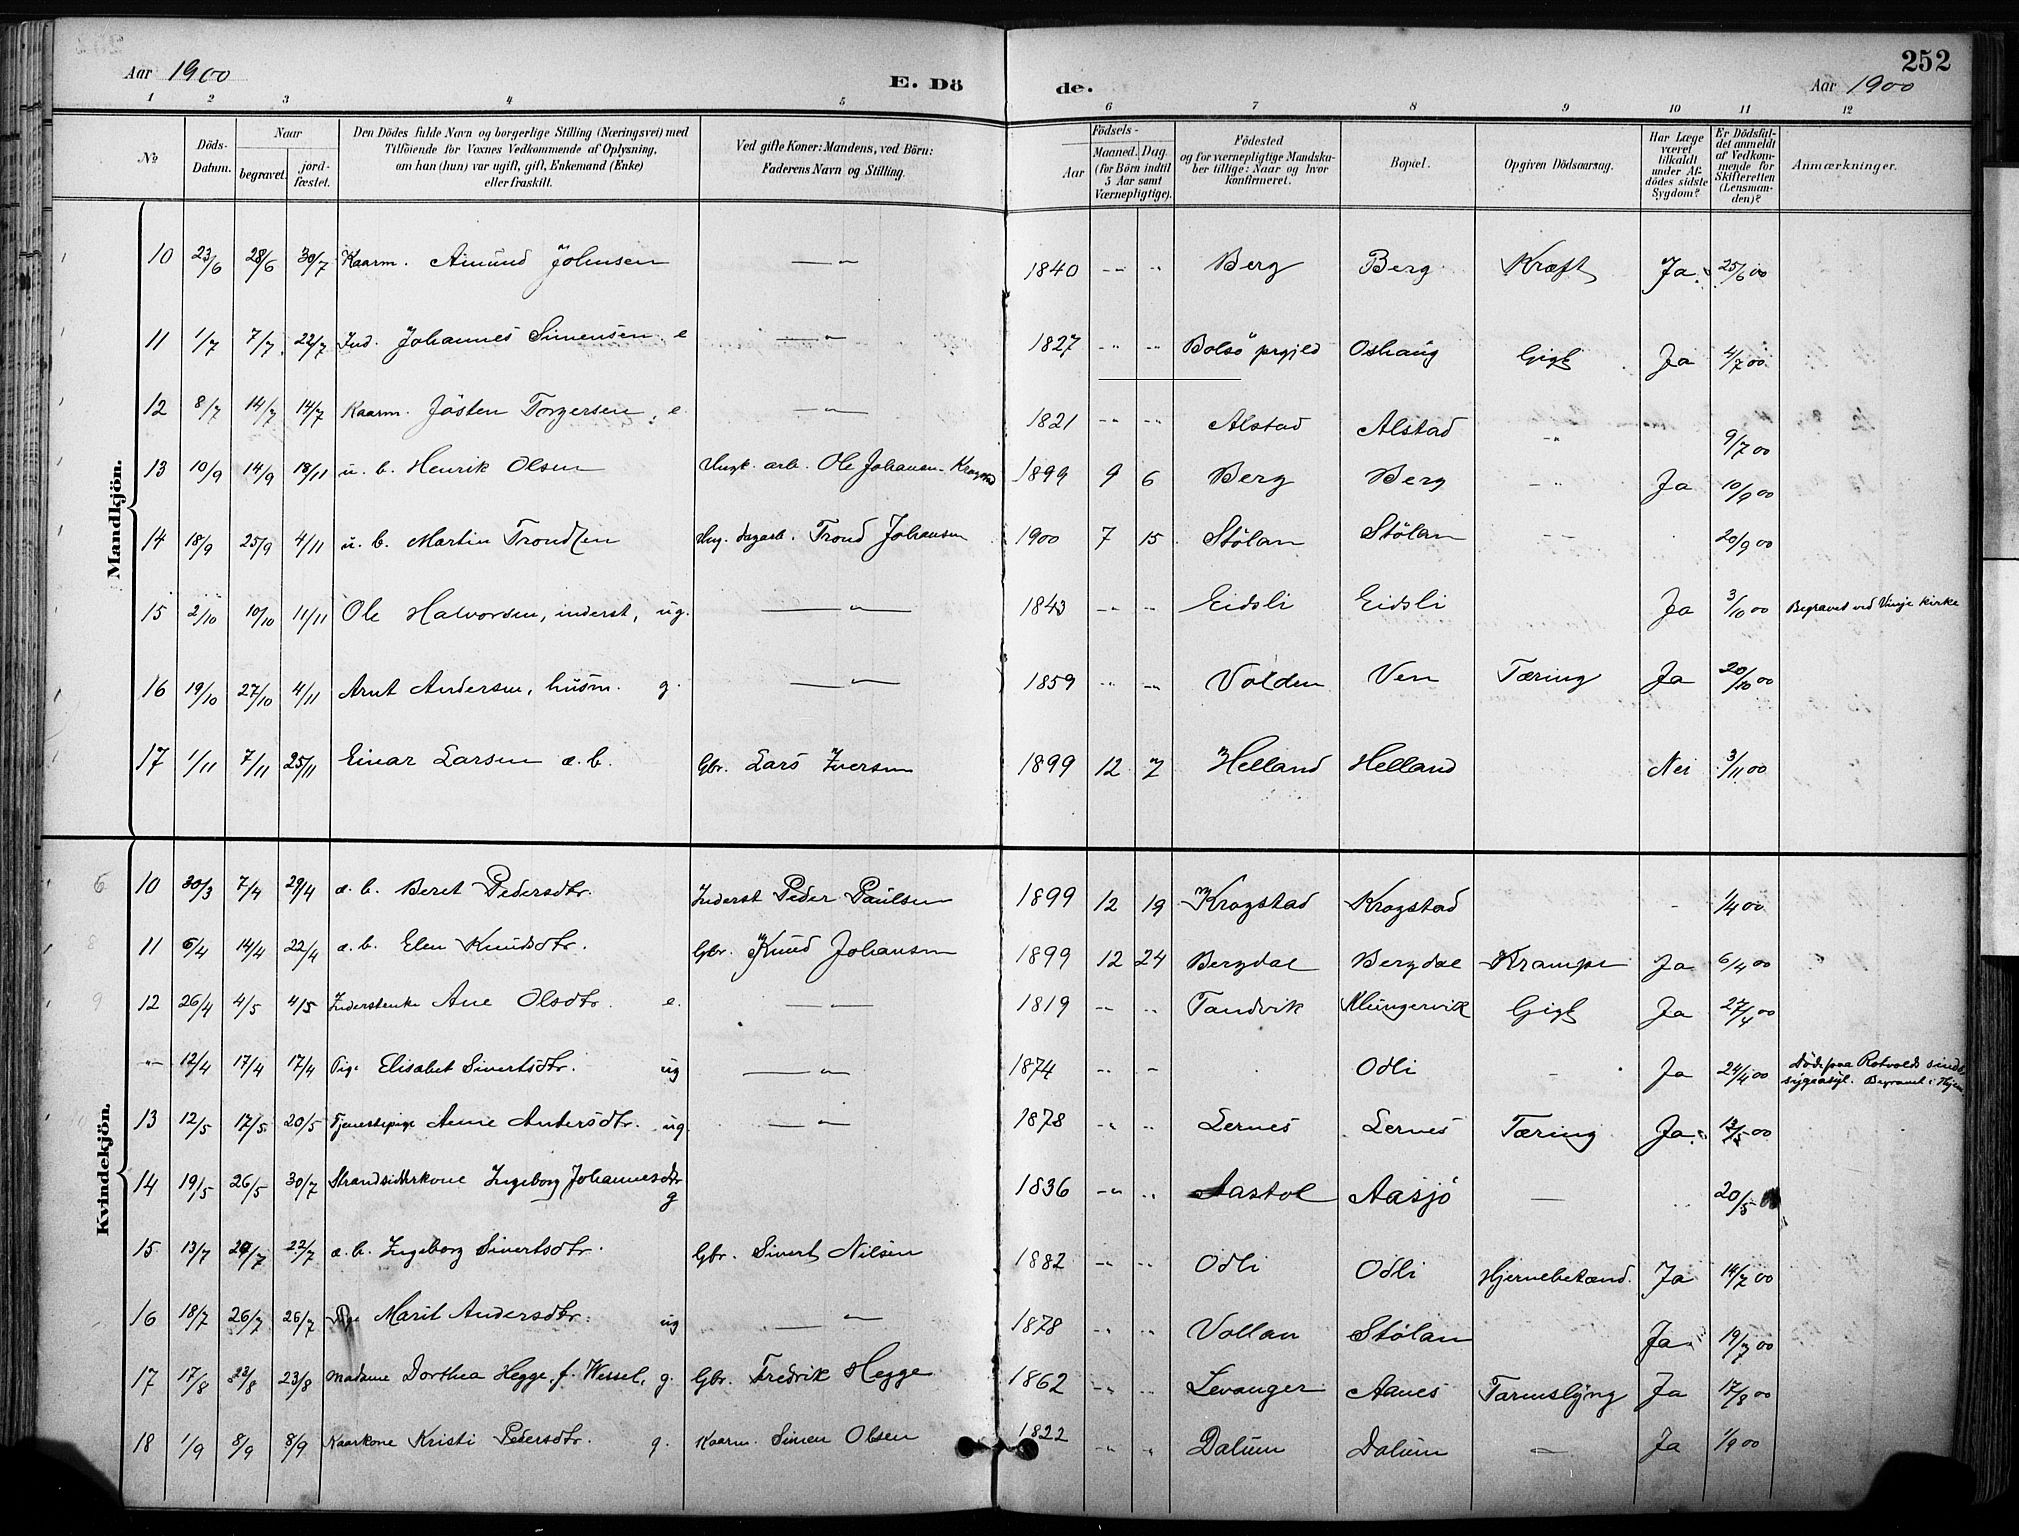 252
Aar 1900 E. Döde. Aar 1900
1 2 3 4 5 6 7 8 9 10 11 12
№ Döds-Datum. Naar begravet. jordfæstet. Den Dödes fulde Navn og borgerlige Stilling (Næringsvei) med Tilföiende for Voxnes Vedkommende af Oplysning, om han (hun) var ugift, gift, Enkemand (Enke) eller fraskilt. Ved gifte Koner: Mandens, ved Börn: Faderens Navn og Stilling. Födsels- Aar Maaned. Dag. (for Börn indtil 5 Aar samt Værnepligtige). Födested og for værnepligtige Mandskaber tillige: Naar og hvor konfirmeret. Bopæl. Opgiven Dödsaarsag. Har Læge været tilkaldt under Afdödes sidste Sygdom? Er Dödsfaldet anmeldt af Vedkommende for Skifteretten (Lensmanden)? Anmærkninger.
Mandkjön.
10 23/6 28/6 30/7 Kaarm. Amund Johnsen — " 1840 " " Berg Berg Kræft Ja. 25/6 00
11 1/7 7/7 22/7 Ind. Johannes Simensen e — " 1827 " " Bolsö prgjeld Oshaug Gigt Ja 4/7 00
12 8/7 14/7 14/7 Kaarm. Jösten Torgersen, e. — " 1821 " " Alstad Alstad " 9/7 00
13 10/9 14/9 18/11 u. b. Henrik Olsen Ungk. arb. Ole Johansen Krogstad 1899 9 6 Berg Berg " Ja 10/9 00
14 18/9 25/9 4/11 u. b. Martin Trondsen Ung. dagarb. Trond Johansen 1900 7 15 Stölan Stölan " 20/9 00
15 2/10 10/10 11/11 Ole Halvorsen, inderst, ug. — " 1843 " " Eidsli Eidsli Ja 3/10 00 Begravet ved Vinje kirke
16 19/10 27/10 4/11 Arnt Andersen, husm. g. — " 1859 " " Volden Ven Tæring Ja 20/10 00
17 1/11 7/11 25/11 Einar Larsen æ. b. Gbr. Lars Iversen 1899 12 7 Helland Helland Nei 3/11 00
Kvindekjön.
10 30/3 7/4 29/4 æ. b. Beret Pedersdtr. Inderst Peder Paulsen 1899 12 19 Krogstad Krogstad - 1/4 00
11 6/4 14/4 22/4 æ. b. Elen Knudsdtr. Gbr. Knud Johansen 1899 12 24 Bergdal Bergdal Krampe Ja 6/4 00
12 26/4 4/5 4/5 Inderstenke Ane Olsdtr. e. — " 1819 " " Tandvik Klungervik Gigt Ja 27/4 00
" 12/4 17/4 17/4 Pige Elisabet Sivertsdtr. ug — " 1874 " " Odli - Ja 24/4 00 Döde paa Rotvolds sindssygeasyl. Begravet i
13 12/5 17/5 20/5 Tjenestepige Anne Andersdtr. ug. — " 1878 " " Lernes Lernes Tæring Ja. 13/5 00
14 19/5 26/5 30/7 Strandsidderkone Ingeborg Johannesdtr g 1836 " " Aastøl Aasjö — " 20/5 00
15 13/7 22/7 æ. b. Ingeborg Sivertsdtr. Gbr. Sivert Nilsen 1882 " " Odli Odli Hjernebetænd. Ja 14/7 00
16 18/7 26/7 26/7 Pige Marit Andersdtr. ug — " 1878 " " Vollan Stölan Ja 19/7 00
17 17/8 23/8 23/8 Madame Dorthea Hegge, f. Wessel, g. Gbr. Fredrik Hegge 1862 " " Levanger Aanes Tarmslyng Ja 17/8 00
18 1/9 8/9 8/9 Kaarkone Kristi Pedersdtr. g. Kaarm. Simen Olsen 1822 " " Dalum Dalum — Ja 1/9 00